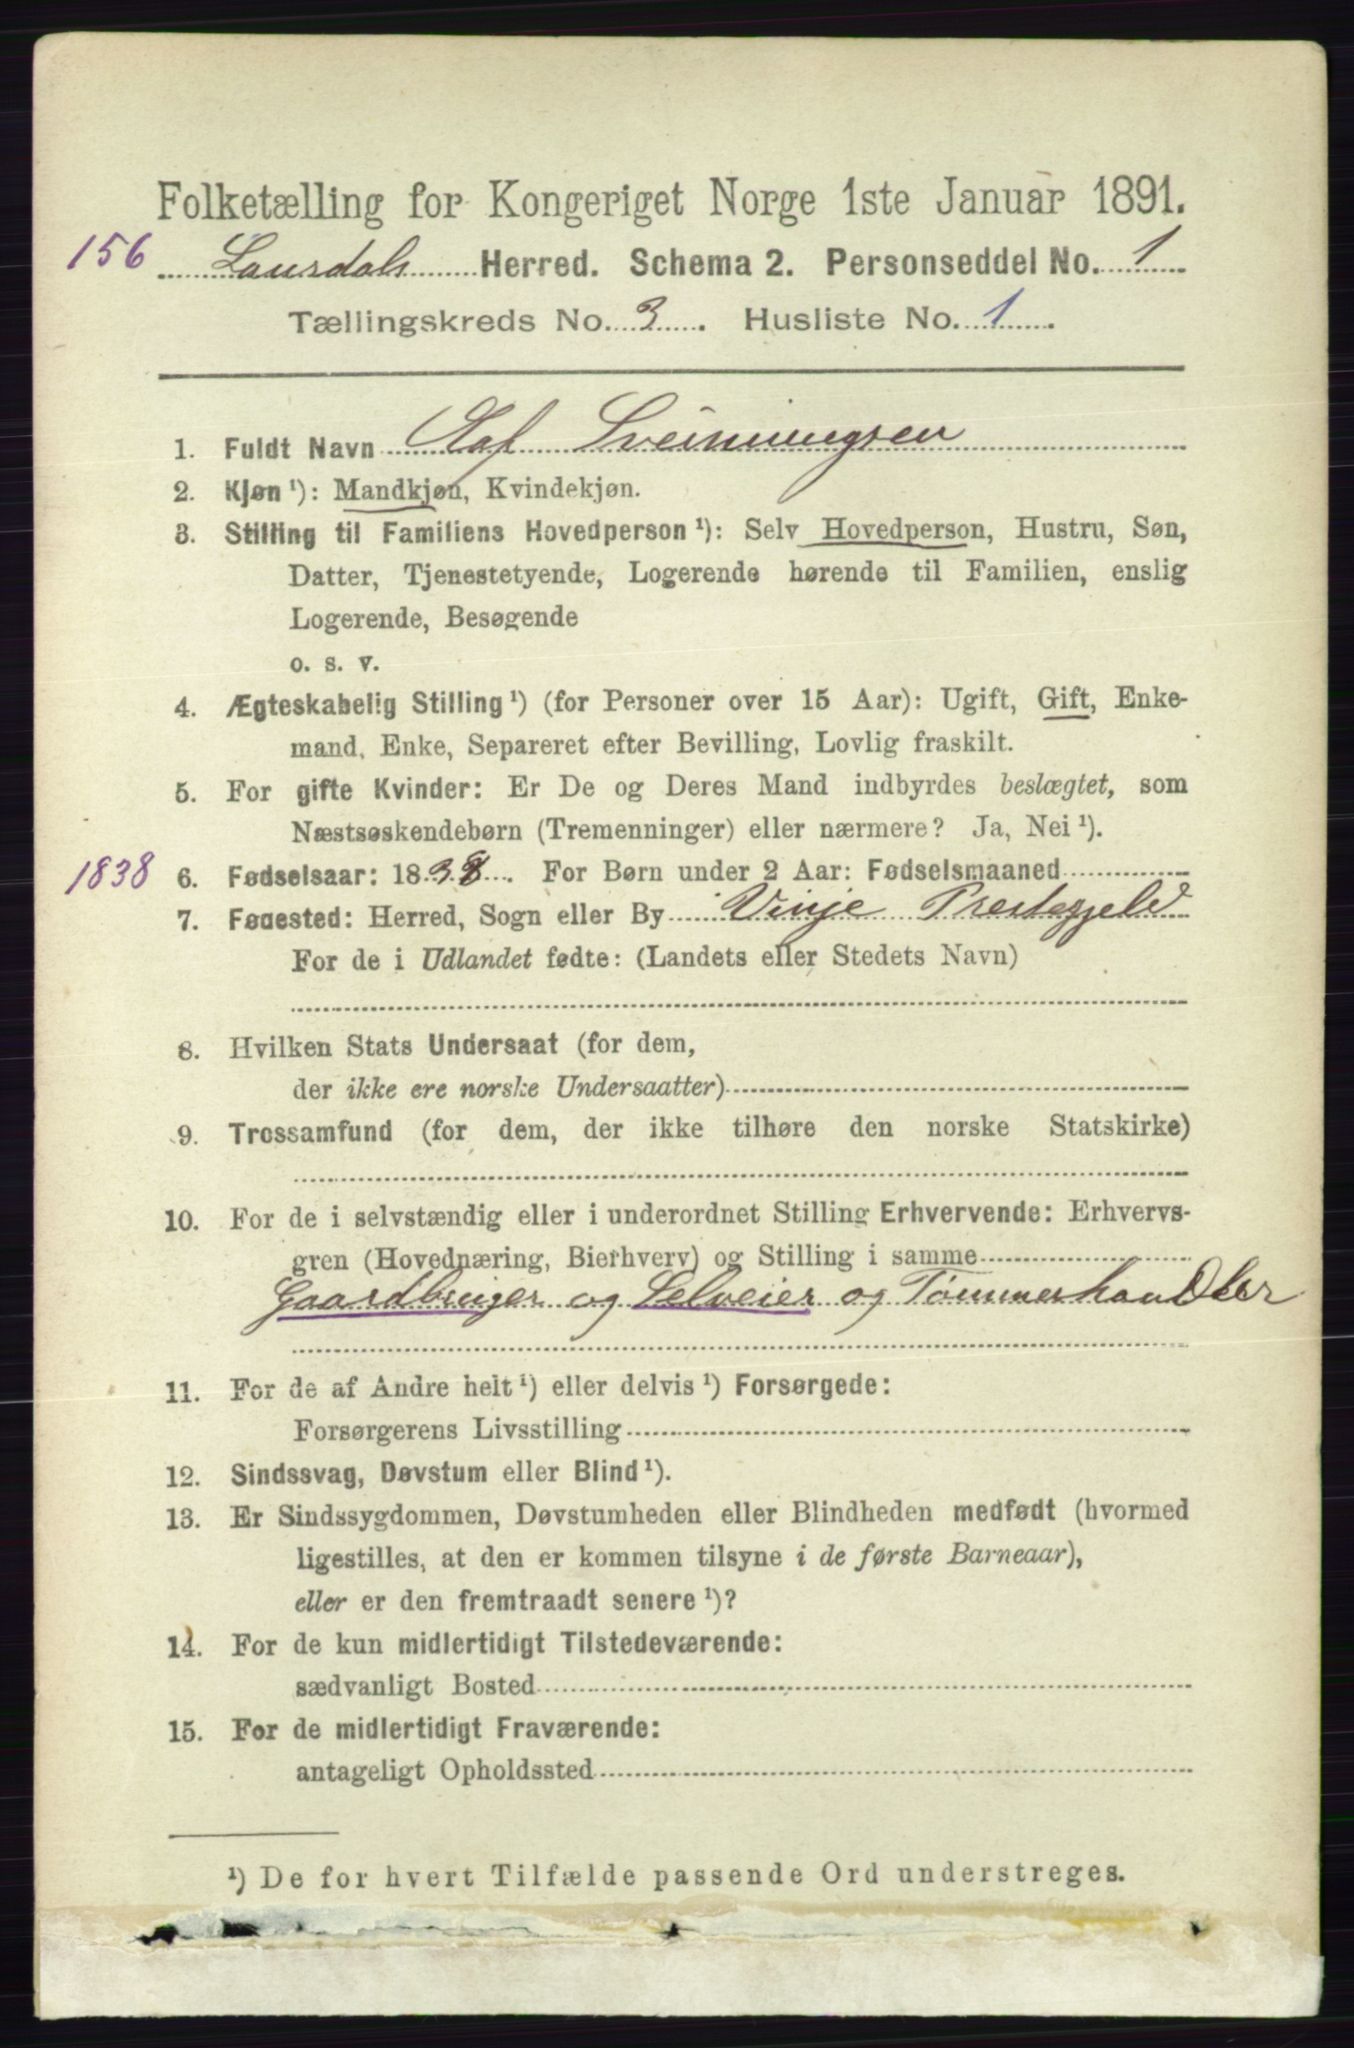 Folketælling for Kongeriget Norge 1ste Januar 1891.
156 Laurdals Herred. Schema 2. Personseddel No. 1
Tællingskreds No. 3. Husliste No. 1.
1. Fuldt Navn Olaf Sveinungsen
2. Kjøn ¹): Mandkjøn, Kvindekjøn.
3. Stilling til Familiens Hovedperson ¹): Selv Hovedperson, Hustru, Søn,
Datter, Tjenestetyende, Logerende hørende til Familien, enslig
Logerende, Besøgende
o. s. v.
4. Ægteskabelig Stilling ¹) (for Personer over 15 Aar): Ugift, Gift, Enke-
mand, Enke, Separeret efter Bevilling, Lovlig fraskilt.
5. For gifte Kvinder: Er De og Deres Mand indbyrdes beslægtet, som
Næstsøskendebørn (Tremenninger) eller nærmere? Ja, Nei ¹).
1838 6. Fødselsaar: 1838. For Børn under 2 Aar: Fødselsmaaned
7. Fødested: Herred, Sogn eller By Vinje Prestegjeld
For de i Udlandet fødte: (Landets eller Stedets Navn)
8. Hvilken Stats Undersaat (for dem,
der ikke ere norske Undersaatter)
9. Trossamfund (for dem, der ikke tilhøre den norske Statskirke)
10. For de i selvstændig eller i underordnet Stilling Erhvervende: Erhvervs-
gren (Hovednæring, Bierhverv) og Stilling i samme
Gaardbruger og Selveier og Tømmerhandler
11. For de af Andre helt ¹) eller delvis ¹) Forsørgede:
Forsørgerens Livsstilling
12. Sindssvag, Døvstum eller Blind ¹).
13. Er Sindssygdommen, Døvstumheden eller Blindheden medfødt (hvormed
ligestilles, at den er kommen tilsyne i de første Barneaar),
eller er den fremtraadt senere ¹)?
14. For de kun midlertidigt Tilstedeværende:
sædvanligt Bosted
15. For de midlertidigt Fraværende:
antageligt Opholdssted
¹) De for hvert Tilfælde passende Ord understreges.